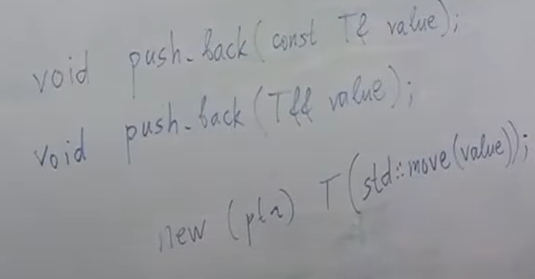 void push_back(const T& value);
void push_back(T&& value);
new (ptr) T(std::move(value));